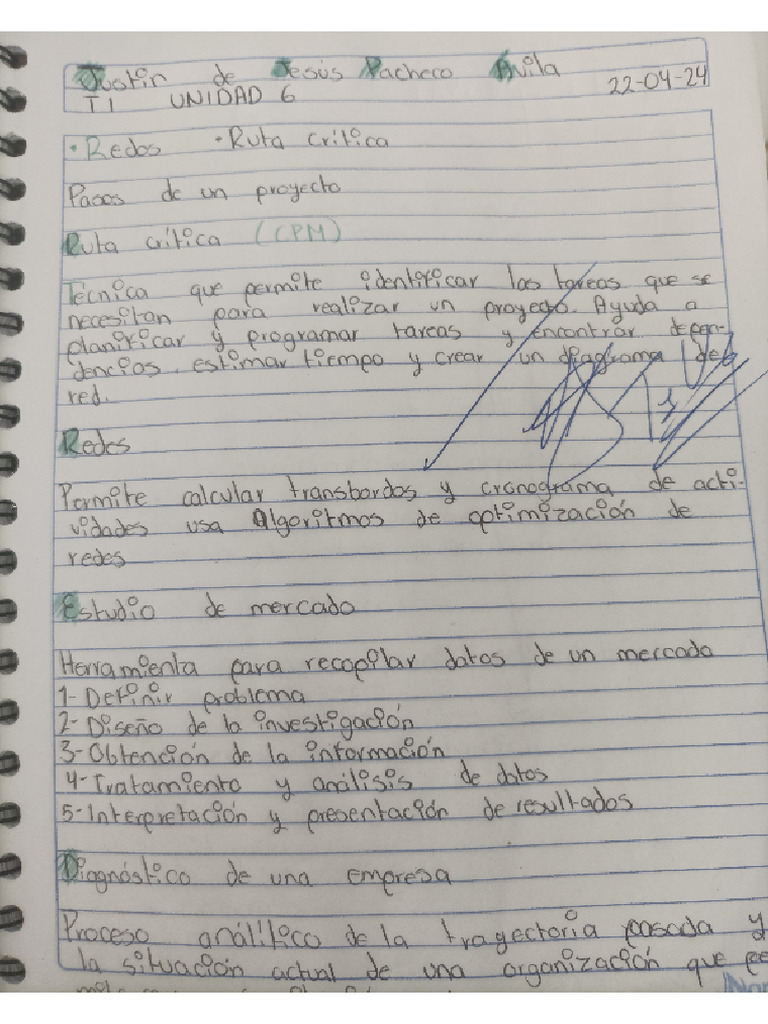 Justin de Jesús Pacheco Avila
22-04-24
TI UNIDAD 6
• Redes • Ruta crítica
Pasos de un proyecto
Ruta crítica (CPM)
Técnica que permite identificar las tareas que se
necesitan para realizar un proyecto. Ayuda a
planificar y programar tareas y encontrar depen-
dencias, estimar tiempo y crear un diagrama de
red.
Redes
Permite calcular transbordos y cronograma de acti-
vidades usa Algoritmos de optimización de
redes
Estudio de mercado
Herramienta para recopilar datos de un mercado
1- Definir problema
2- Diseño de la investigación
3- Obtención de la información
4- Tratamiento y análisis de datos
5- Interpretación y presentación de resultados
Diagnóstico de una empresa
Proceso análitico de la trayectoria pasada y
la situación actual de una organización que